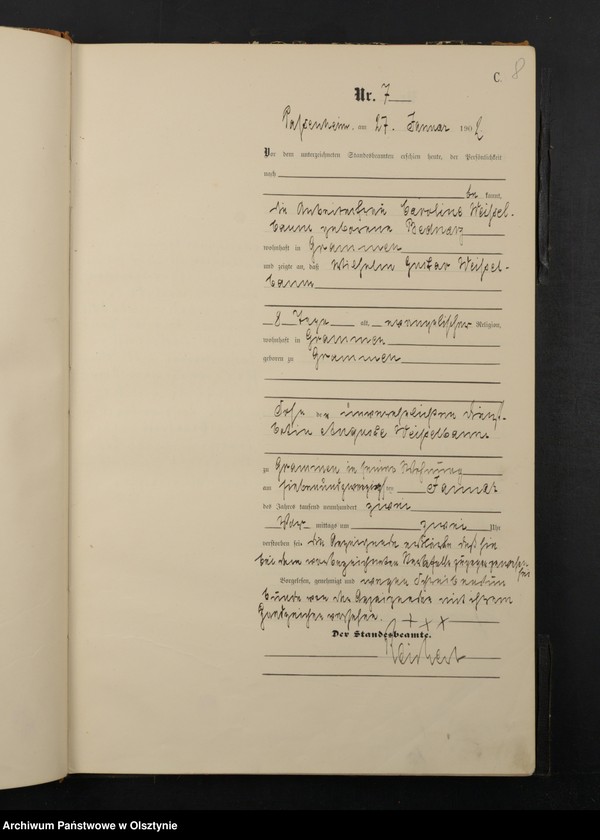 C. 8
Nr. 7
Passenheim, am 27. Januar 1902
Vor dem unterzeichneten Standesbeamten erschien heute, der Persönlichkeit
nach
be kannt,
die Arbeiterfrau Caroline Weissel-
baum geborene Bednarz
wohnhaft in Grammen
und zeigte an, daß Wilhelm Gustav Weissel-
baum
8 Tage alt, evangelischer Religion,
wohnhaft in Grammen
geboren zu Grammen
Sohn der unverehelichten Dienst-
botin Auguste Weisselbaum
zu Grammen in seiner Wohnung
am siebenundzwanzigsten Januar
des Jahres tausend neunhundert zwei
Vor mittags um zwei Uhr
verstorben sei. Die Anzeigende erklärte daß sie
bei dem vorbezeichneten Sterbefalle zugegen gewesen
sei
Vorgelesen, genehmigt und wegen Schreibens un
kunde von der Anzeigenden mit ihrem
Handzeichen versehen. + x x
Der Standesbeamte.
Reichert
Archiwum Państwowe w Olsztynie